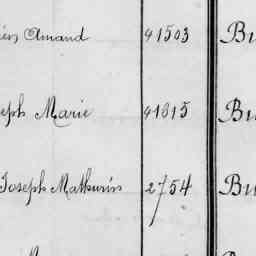 Amand 41503 Bu
eph Marie 41815 Bu
Joseph Mathurin 2754 Bu